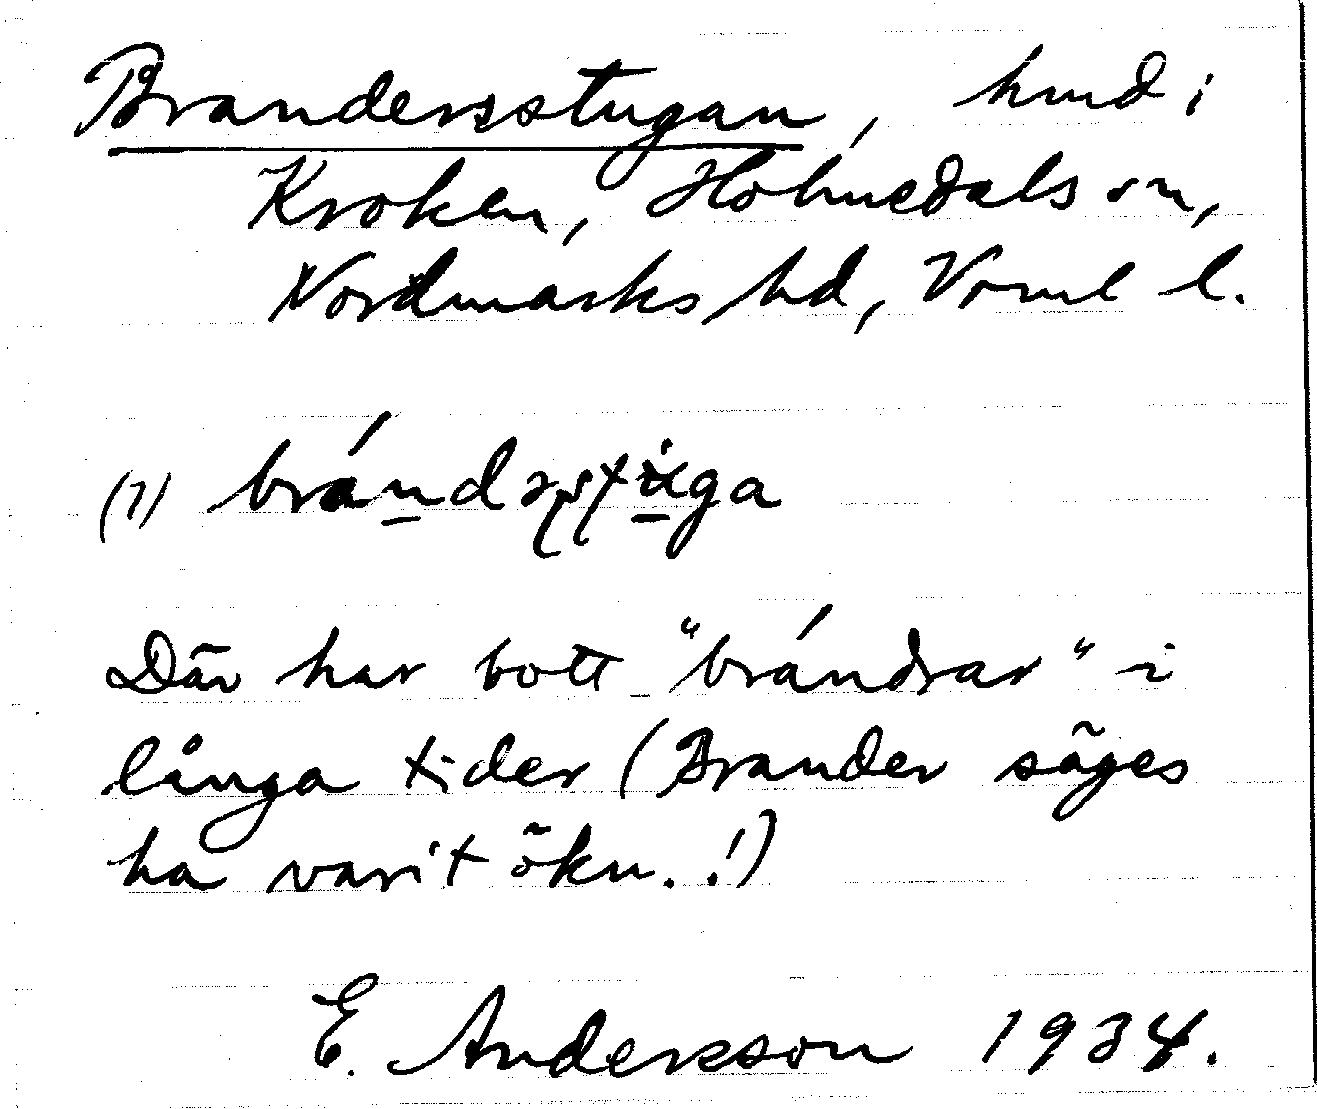 Brandersstugan, hmd i
Kroken, Holmedals sn,
Nordmarks hd, Vrml l.
(1)
Där har bott "brándrar" i
långa tider (Brander säges
ha varit ökn..!)
E. Andersson 1934.